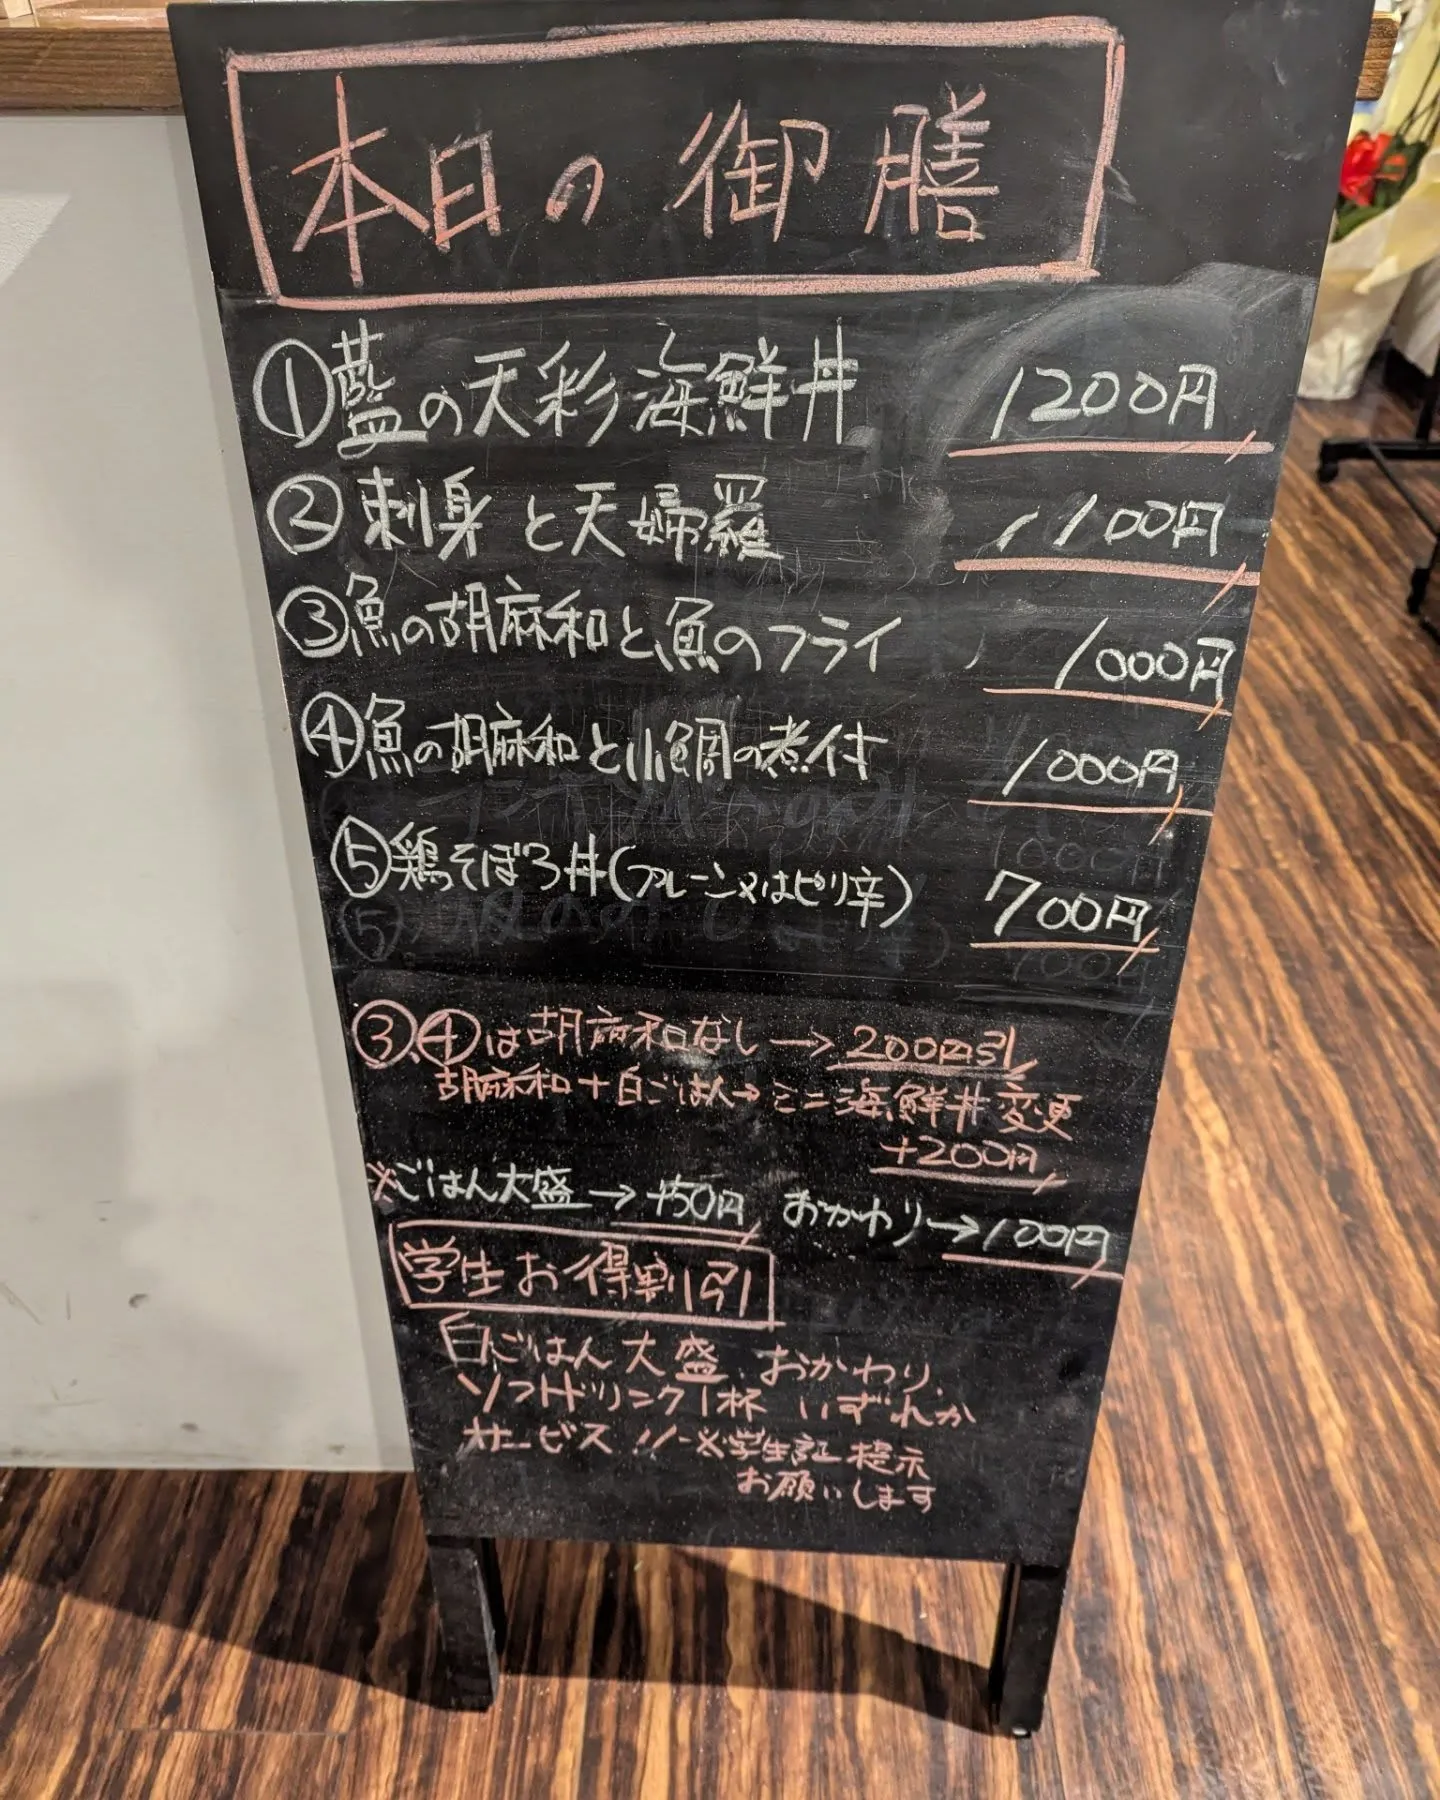 本日の御膳
①藍の天彩海鮮丼 1200円
②刺身と天婦羅 1100円
③魚の胡麻和と魚のフライ 1000円
④魚の胡麻和と小鯛の煮付 1000円
⑤鶏そぼろ丼(プレーン又はピリ辛) 700円
③、④は胡麻和なし→200円引
胡麻和+白ごはん→ミニ海鮮丼変更
+200円
※ごはん大盛→+50円 おかわり→100円
学生お得割引
白ごはん大盛、おかわり、
ソフトドリンク1杯 いずれか
サービス!!※学生証提示
お願いします